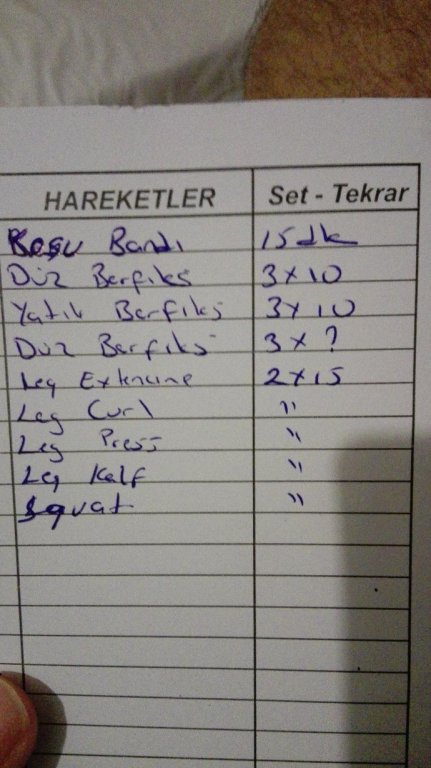 HAREKETLER Set - Tekrar
Koşu Bandı 15 dk
Düz Barfiks 3 x 10
Yatık Barfiks 3 x 10
Düz Barfiks 3 x ?
Leg Extencine 2 x 15
Leg Curl "
Leg Press "
Leg Kalf "
Squat "